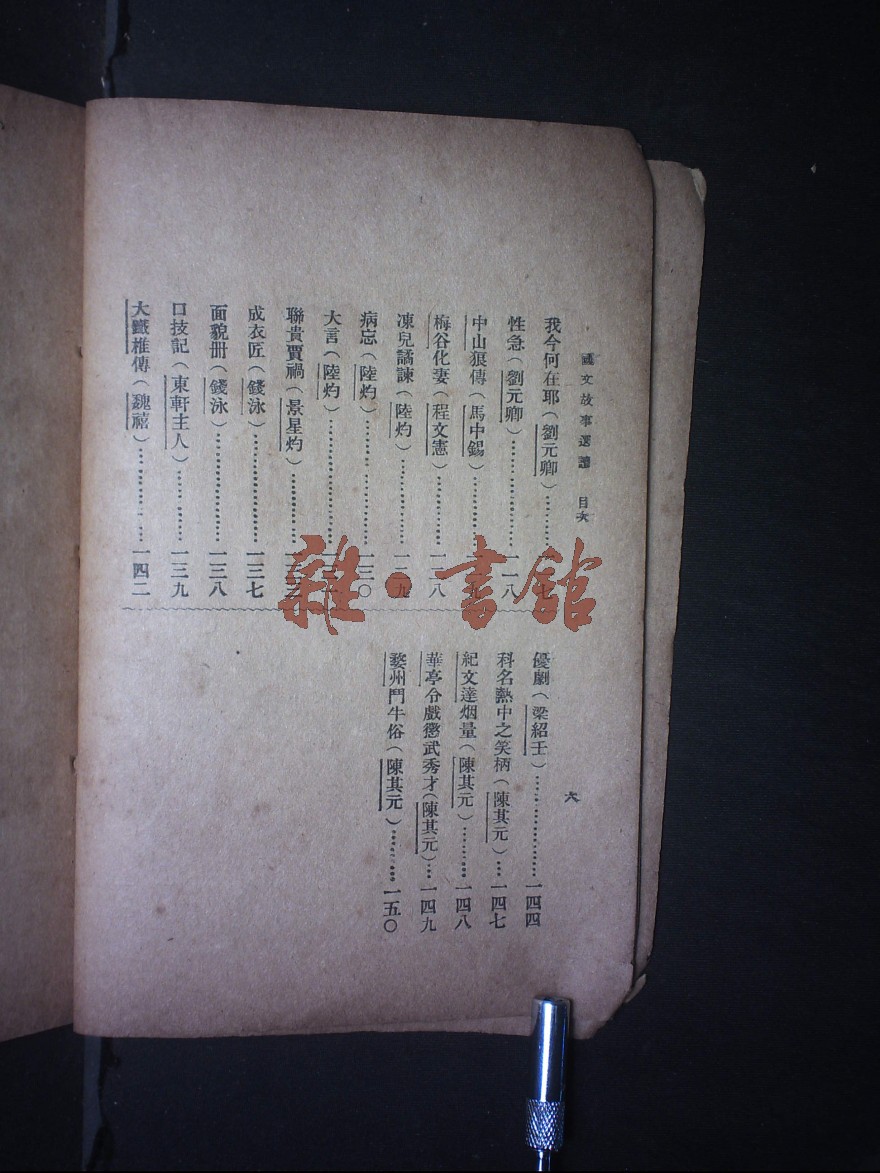 國文故事選讀 目次 六
我今何在耶(劉元卿)
性急(劉元卿)一一八
中山狼傳(馬中錫)
梅谷化妻(程文憲)一二八
凍兒譎諫(陸灼)一二九
病忘(陸灼)一三〇
大言(陸灼)
聯貴賈禍(景星灼)
成衣匠(錢泳)一三七
面貌册(錢泳)一三八
口技記(東軒主人)一三九
大鐵椎傳(魏禧)一四二
優劇(梁紹壬)一四四
科名熱中之笑柄(陳其元)一四七
紀文達烟量(陳其元)一四八
華亭令戲懲武秀才(陳其元)一四九
婺州鬥牛俗(陳其元)一五〇
雜·書館